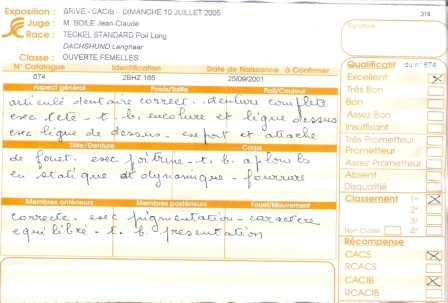 Exposition : BRIVE - CACIB - DIMANCHE 10 JUILLET 2005
319
Juge : M. BOILE Jean-Claude
Signature :
Race : TECKEL STANDARD Poil Long
DACHSHUND Langhaar
Classe : OUVERTE FEMELLES
N° Catalogue Identification Date de Naissance à Confirmer
674 2BHZ 165 25/09/2001
Qualificatif du n° 674
Aspect général Poids/Taille Poil/Couleur
Excellent X
articulé dentaire correct. denture complète
Très Bon
Bon
exc tête - t. b. encolure et ligne dessus
Assez Bon
exc ligne de dessus. exc port et attache
Insuffisant
Très Prometteur
Tête/Denture Corps
Prometteur
de fouet. exc poitrine - t. b. aplombs
Assez Prometteur
en statique et dynamique - fourrure
Absent
Disqualifié
Membres antérieurs Membres postérieurs Fouet/Mouvement
Classement 1er X
2e
correcte. exc pigmentation - caractère
3e
équilibré - t. b. présentation
Non Classé 4e
Récompense
CACS X
RCACS
CACIB X
RCACIB